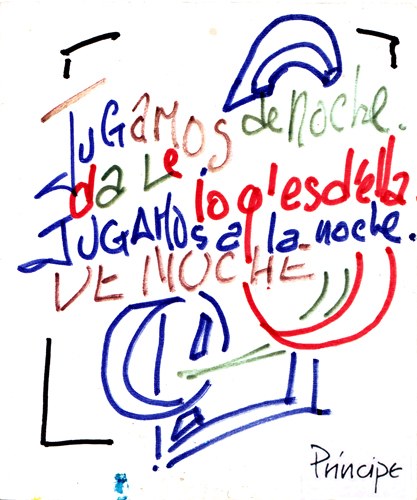 JUGAMOS de NOCHE.
daLe lo q' es d'ella.
JUGAMOS a la noche.
DE NOCHE
Príncipe